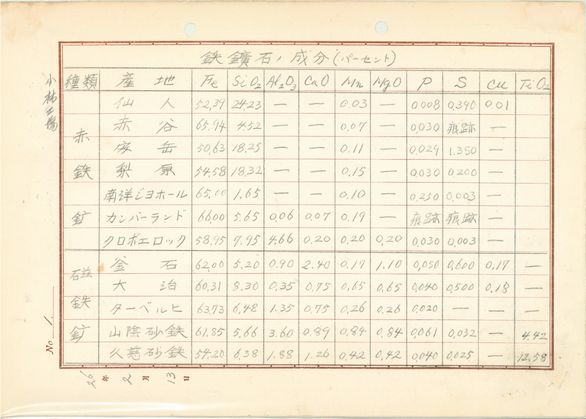 鉄鑛石ノ成分(パーセント)
種類 産地 Fe SiO2 Al2O3 CaO Mn MgO P S Cu TiO2
赤鉄鉱
仙人 52.39 24.23 — — 0.03 — 0.008 0.390 0.01
赤谷 65.94 4.52 — — 0.07 — 0.030 痕跡 —
安岳 50.63 18.25 — — 0.11 — 0.029 1.350 —
54.58 18.32 — — 0.15 — 0.030 0.200 —
南洋ジョホール 65.00 1.65 — — 0.10 — 0.250 0.003 —
カンバーランド 66.00 5.65 0.06 0.07 0.19 — 痕跡 痕跡 —
クロボエロック 58.95 7.95 4.66 0.20 0.20 0.20 0.030 0.003 —
磁鉄鉱
釜石 62.00 5.20 0.90 2.40 0.19 1.10 0.050 0.600 0.17 —
大冶 60.31 8.30 0.35 0.75 0.65 0.65 0.040 0.500 0.18 —
ターベルヒ 63.73 6.48 1.35 0.75 0.26 0.26 0.020 — — —
山陰砂鉄 61.85 5.66 3.60 0.89 0.84 0.84 0.061 0.032 — 4.42
久慈砂鉄 54.20 6.38 1.88 1.26 0.42 0.42 0.040 0.025 — 12.58
No. 1
26年2月13日